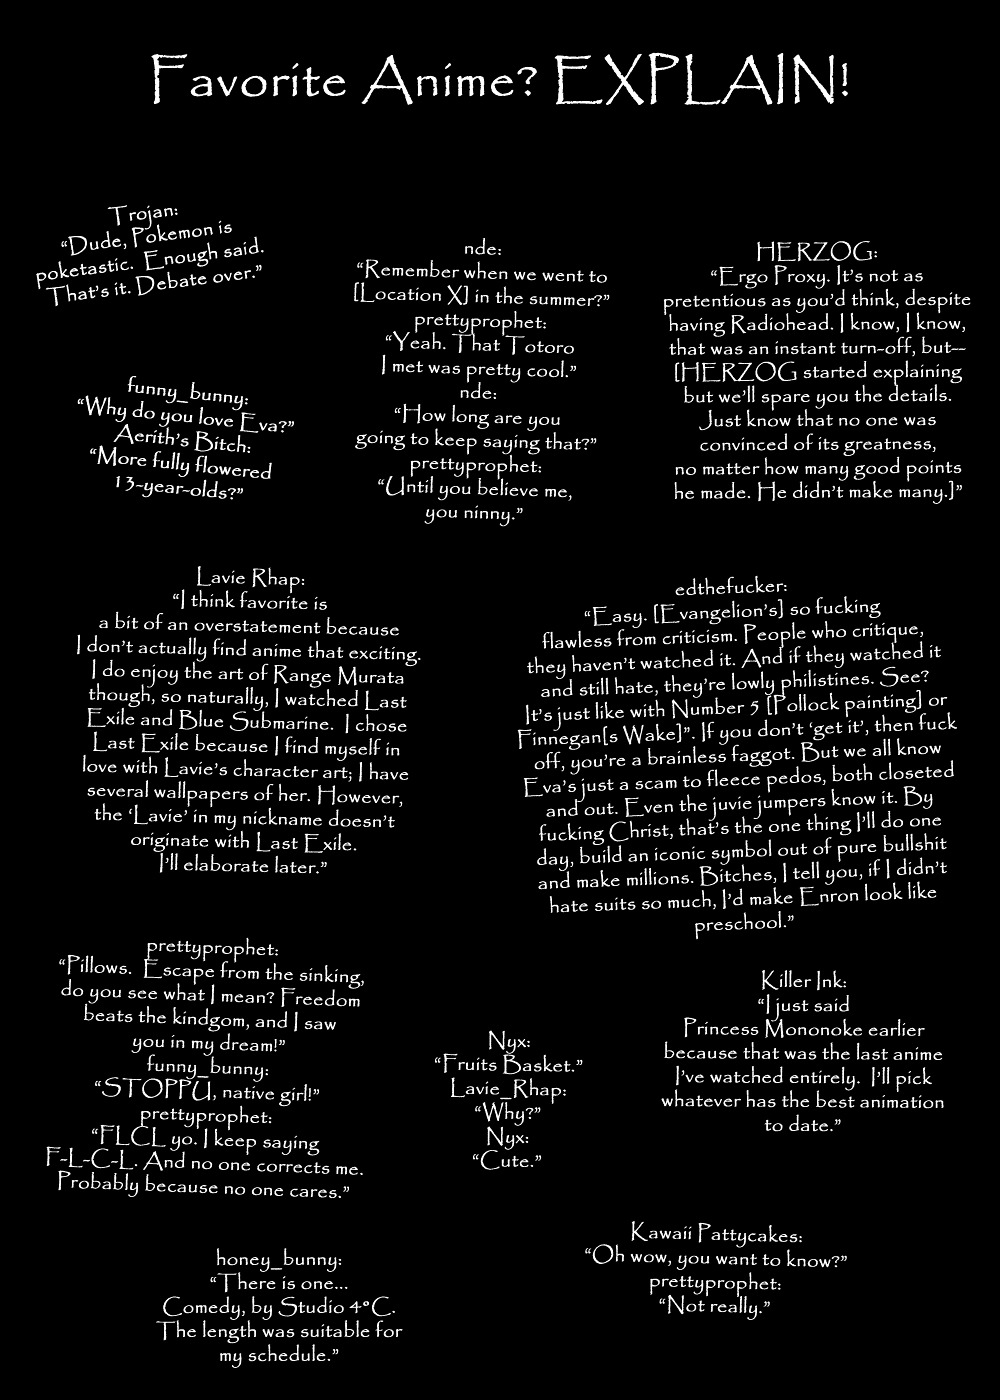 Favorite Anime? EXPLAIN!
Trojan:
“Dude, Pokemon is
poketastic. Enough said.
That’s it. Debate over.”
nde:
“Remember when we went to
[Location X] in the summer?”
prettyprophet:
“Yeah. That Totoro
I met was pretty cool.”
nde:
“How long are you
going to keep saying that?”
prettyprophet:
“Until you believe me,
you ninny.”
HERZOG:
“Ergo Proxy. It’s not as
pretentious as you’d think, despite
having Radiohead. I know, I know,
that was an instant turn-off, but--
[HERZOG started explaining
but we’ll spare you the details.
Just know that no one was
convinced of its greatness,
no matter how many good points
he made. He didn’t make many.]”
funny_bunny:
“Why do you love Eva?”
Aerith’s Bitch:
“More fully flowered
13-year-olds?”
Lavie Rhap:
“I think favorite is
a bit of an overstatement because
I don’t actually find anime that exciting.
I do enjoy the art of Range Murata
though, so naturally, I watched Last
Exile and Blue Submarine. I chose
Last Exile because I find myself in
love with Lavie’s character art; I have
several wallpapers of her. However,
the ‘Lavie’ in my nickname doesn’t
originate with Last Exile.
I’ll elaborate later.”
edthefucker:
“Easy. [Evangelion’s] so fucking
flawless from criticism. People who critique,
they haven’t watched it. And if they watched it
and still hate, they’re lowly philistines. See?
It’s just like with Number 5 [Pollock painting] or
Finnegan[s Wake]”. If you don’t ‘get it’, then fuck
off, you’re a brainless faggot. But we all know
Eva’s just a scam to fleece pedos, both closeted
and out. Even the juvie jumpers know it. By
fucking Christ, that’s the one thing I’ll do one
day, build an iconic symbol out of pure bullshit
and make millions. Bitches, I tell you, if I didn’t
hate suits so much, I’d make Enron look like
preschool.”
prettyprophet:
“Pillows. Escape from the sinking,
do you see what I mean? Freedom
beats the kindgom, and I saw
you in my dream!”
funny_bunny:
“STOPPU, native girl!”
prettyprophet:
“FLCL yo. I keep saying
F-L-C-L. And no one corrects me.
Probably because no one cares.”
Nyx:
“Fruits Basket.”
Lavie_Rhap:
“Why?”
Nyx:
“Cute.”
Killer Ink:
“I just said
Princess Mononoke earlier
because that was the last anime
I’ve watched entirely. I’ll pick
whatever has the best animation
to date.”
honey_bunny:
“There is one...
Comedy, by Studio 4°C.
The length was suitable for
my schedule.”
Kawaii Pattycakes:
“Oh wow, you want to know?”
prettyprophet:
“Not really.”